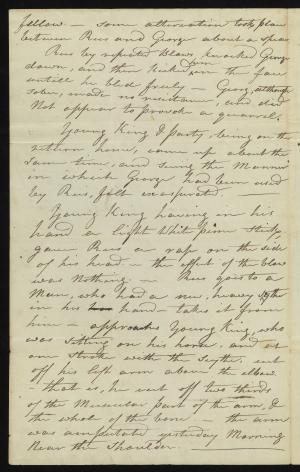 fellow — some altercation took place
between Rees and George about a spear
Rees by repeated blows knocked George
down, and then kicked him in the face
untill he bled freely — George, although
sober, made no resistance, and did
Not appear to provoke a quarrel,
Young King & party, being on the
return home, came up about the
same time, and seeing the Manner
in which George had been used
by Rees, felt exasperated
Young King having in his
hand a light White pine stick,
gave Rees a rap on the side
of his head — the effect of the blow
was Nothing. — Rees goes to a
Man, who had a new, heavy scythe
in his hand — takes it from
him — approaches Young King, who
was sitting on his horse, and at
one stroke with the Scythe, cut
off his left arm above the elbow
— that is, he cut off two thirds
of the Muscular part of the arm, &
the whole of the bone — the arm
was amputated yesterday Morning
Near the Shoulder —